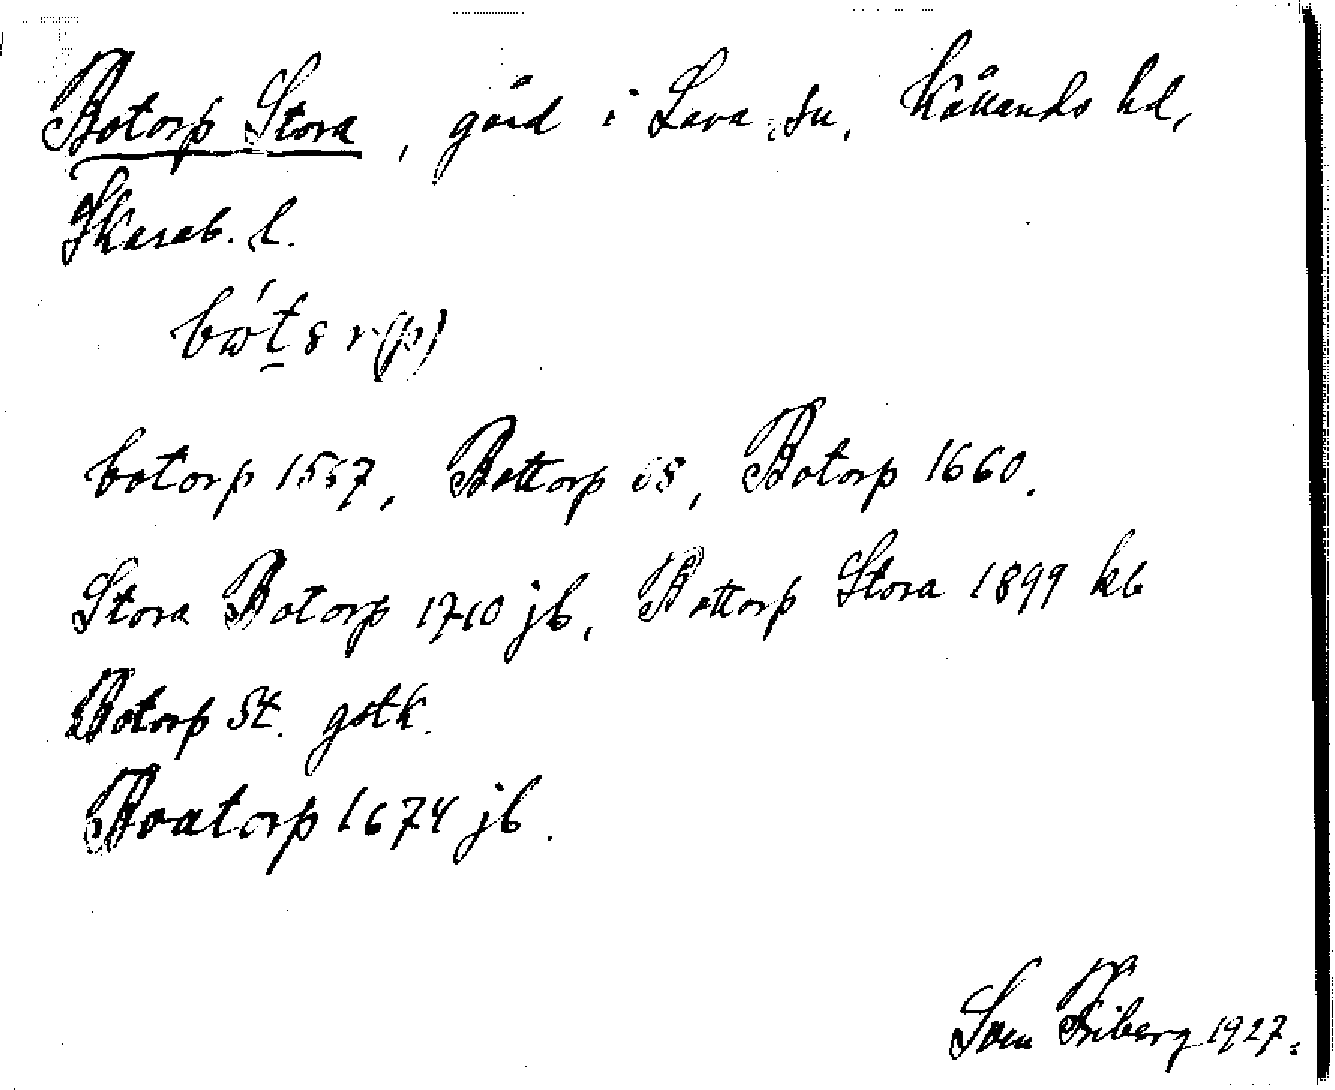 Botorp Stora, gård i Lava sn, Kållands hd,
Skarab. l.
botorp 1567, Bottorp 65, Botorp 1660.
Stora Botorp 1710 jb, Bottorp Stora 1899 kb
Botorp St. gstk.
Boatorp 1674 jb.
Sven Friberg 1927.